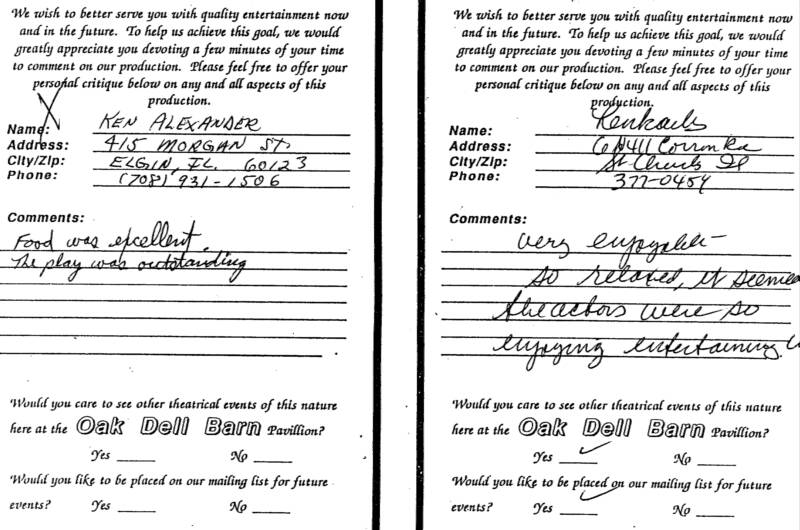 We wish to better serve you with quality entertainment now
and in the future. To help us achieve this goal, we would
greatly appreciate you devoting a few minutes of your time
to comment on our production. Please feel free to offer your
personal critique below on any and all aspects of this
production.
Name: KEN ALEXANDER
Address: 415 MORGAN ST.
City/Zip: ELGIN, IL. 60123
Phone: (708) 931-1506
Comments:
Food was excellent.
The play was outstanding
Would you care to see other theatrical events of this nature
here at the Oak Dell Barn Pavillion?
Yes ____ No ____
Would you like to be placed on our mailing list for future
events? Yes ____ No ____
We wish to better serve you with quality entertainment now
and in the future. To help us achieve this goal, we would
greatly appreciate you devoting a few minutes of your time
to comment on our production. Please feel free to offer your
personal critique below on any and all aspects of this
production.
Name:
Address:
City/Zip: St Charles Il
Phone: 377-0454
Comments:
very enjoyable-
so relaxed, it seemed
the actors were so
enjoying entertaining.
Would you care to see other theatrical events of this nature
here at the Oak Dell Barn Pavillion?
Yes ✓ No ____
Would you like to be placed on our mailing list for future
events? Yes ✓ No ____